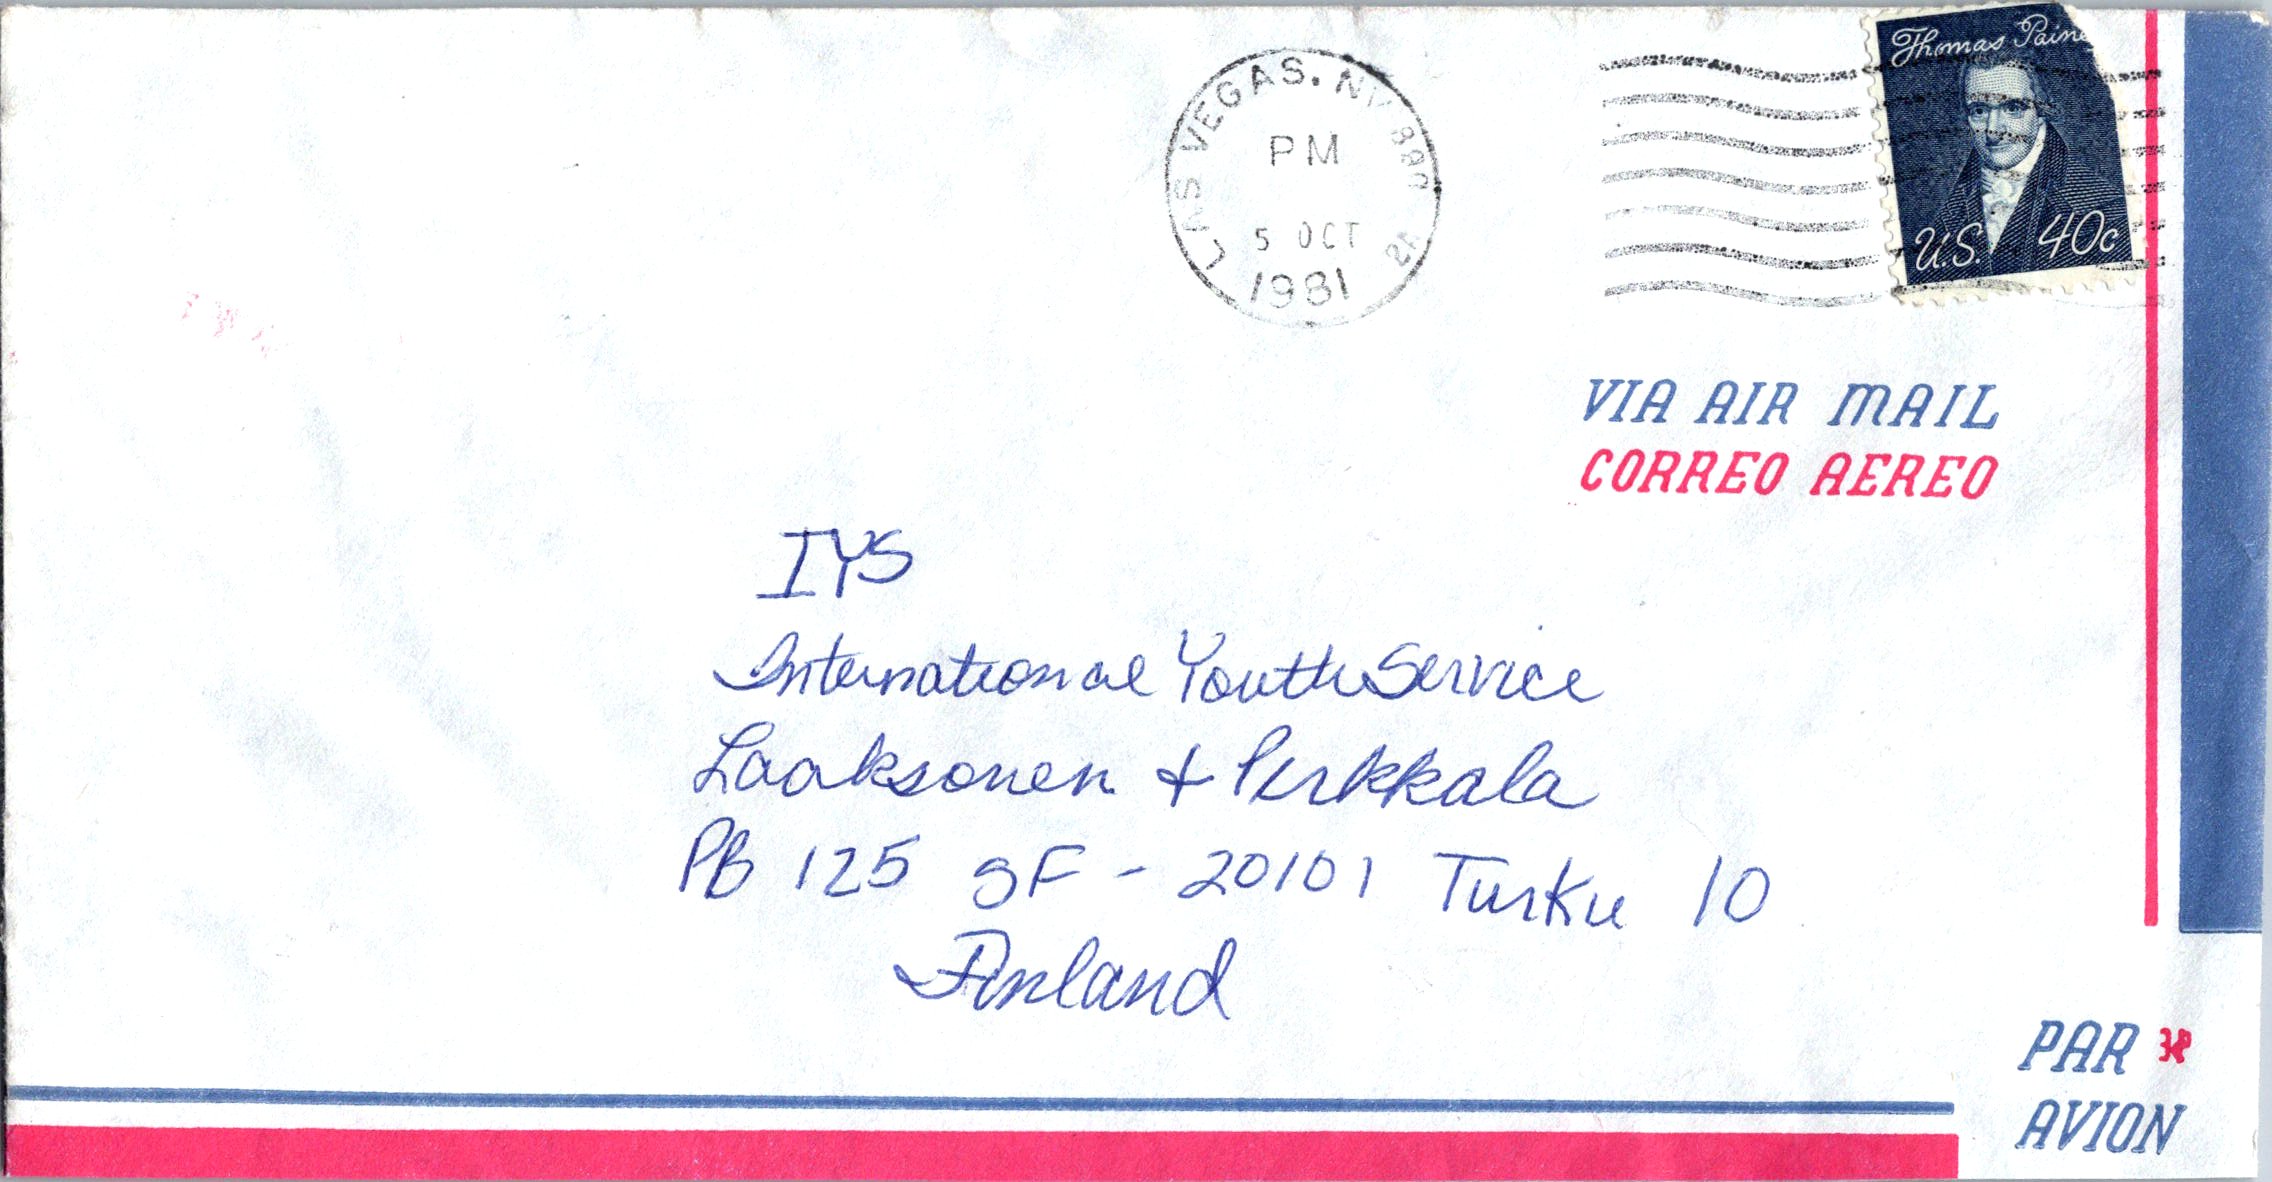 LAS VEGAS, NV 890
PM
5 OCT
1981
2A
Thomas Paine
U.S. 40c
VIA AIR MAIL
CORREO AEREO
IYS
International Youth Service
Laaksonen + Pirkkala
PB 125 SF - 20101 Turku 10
Finland
PAR
AVION